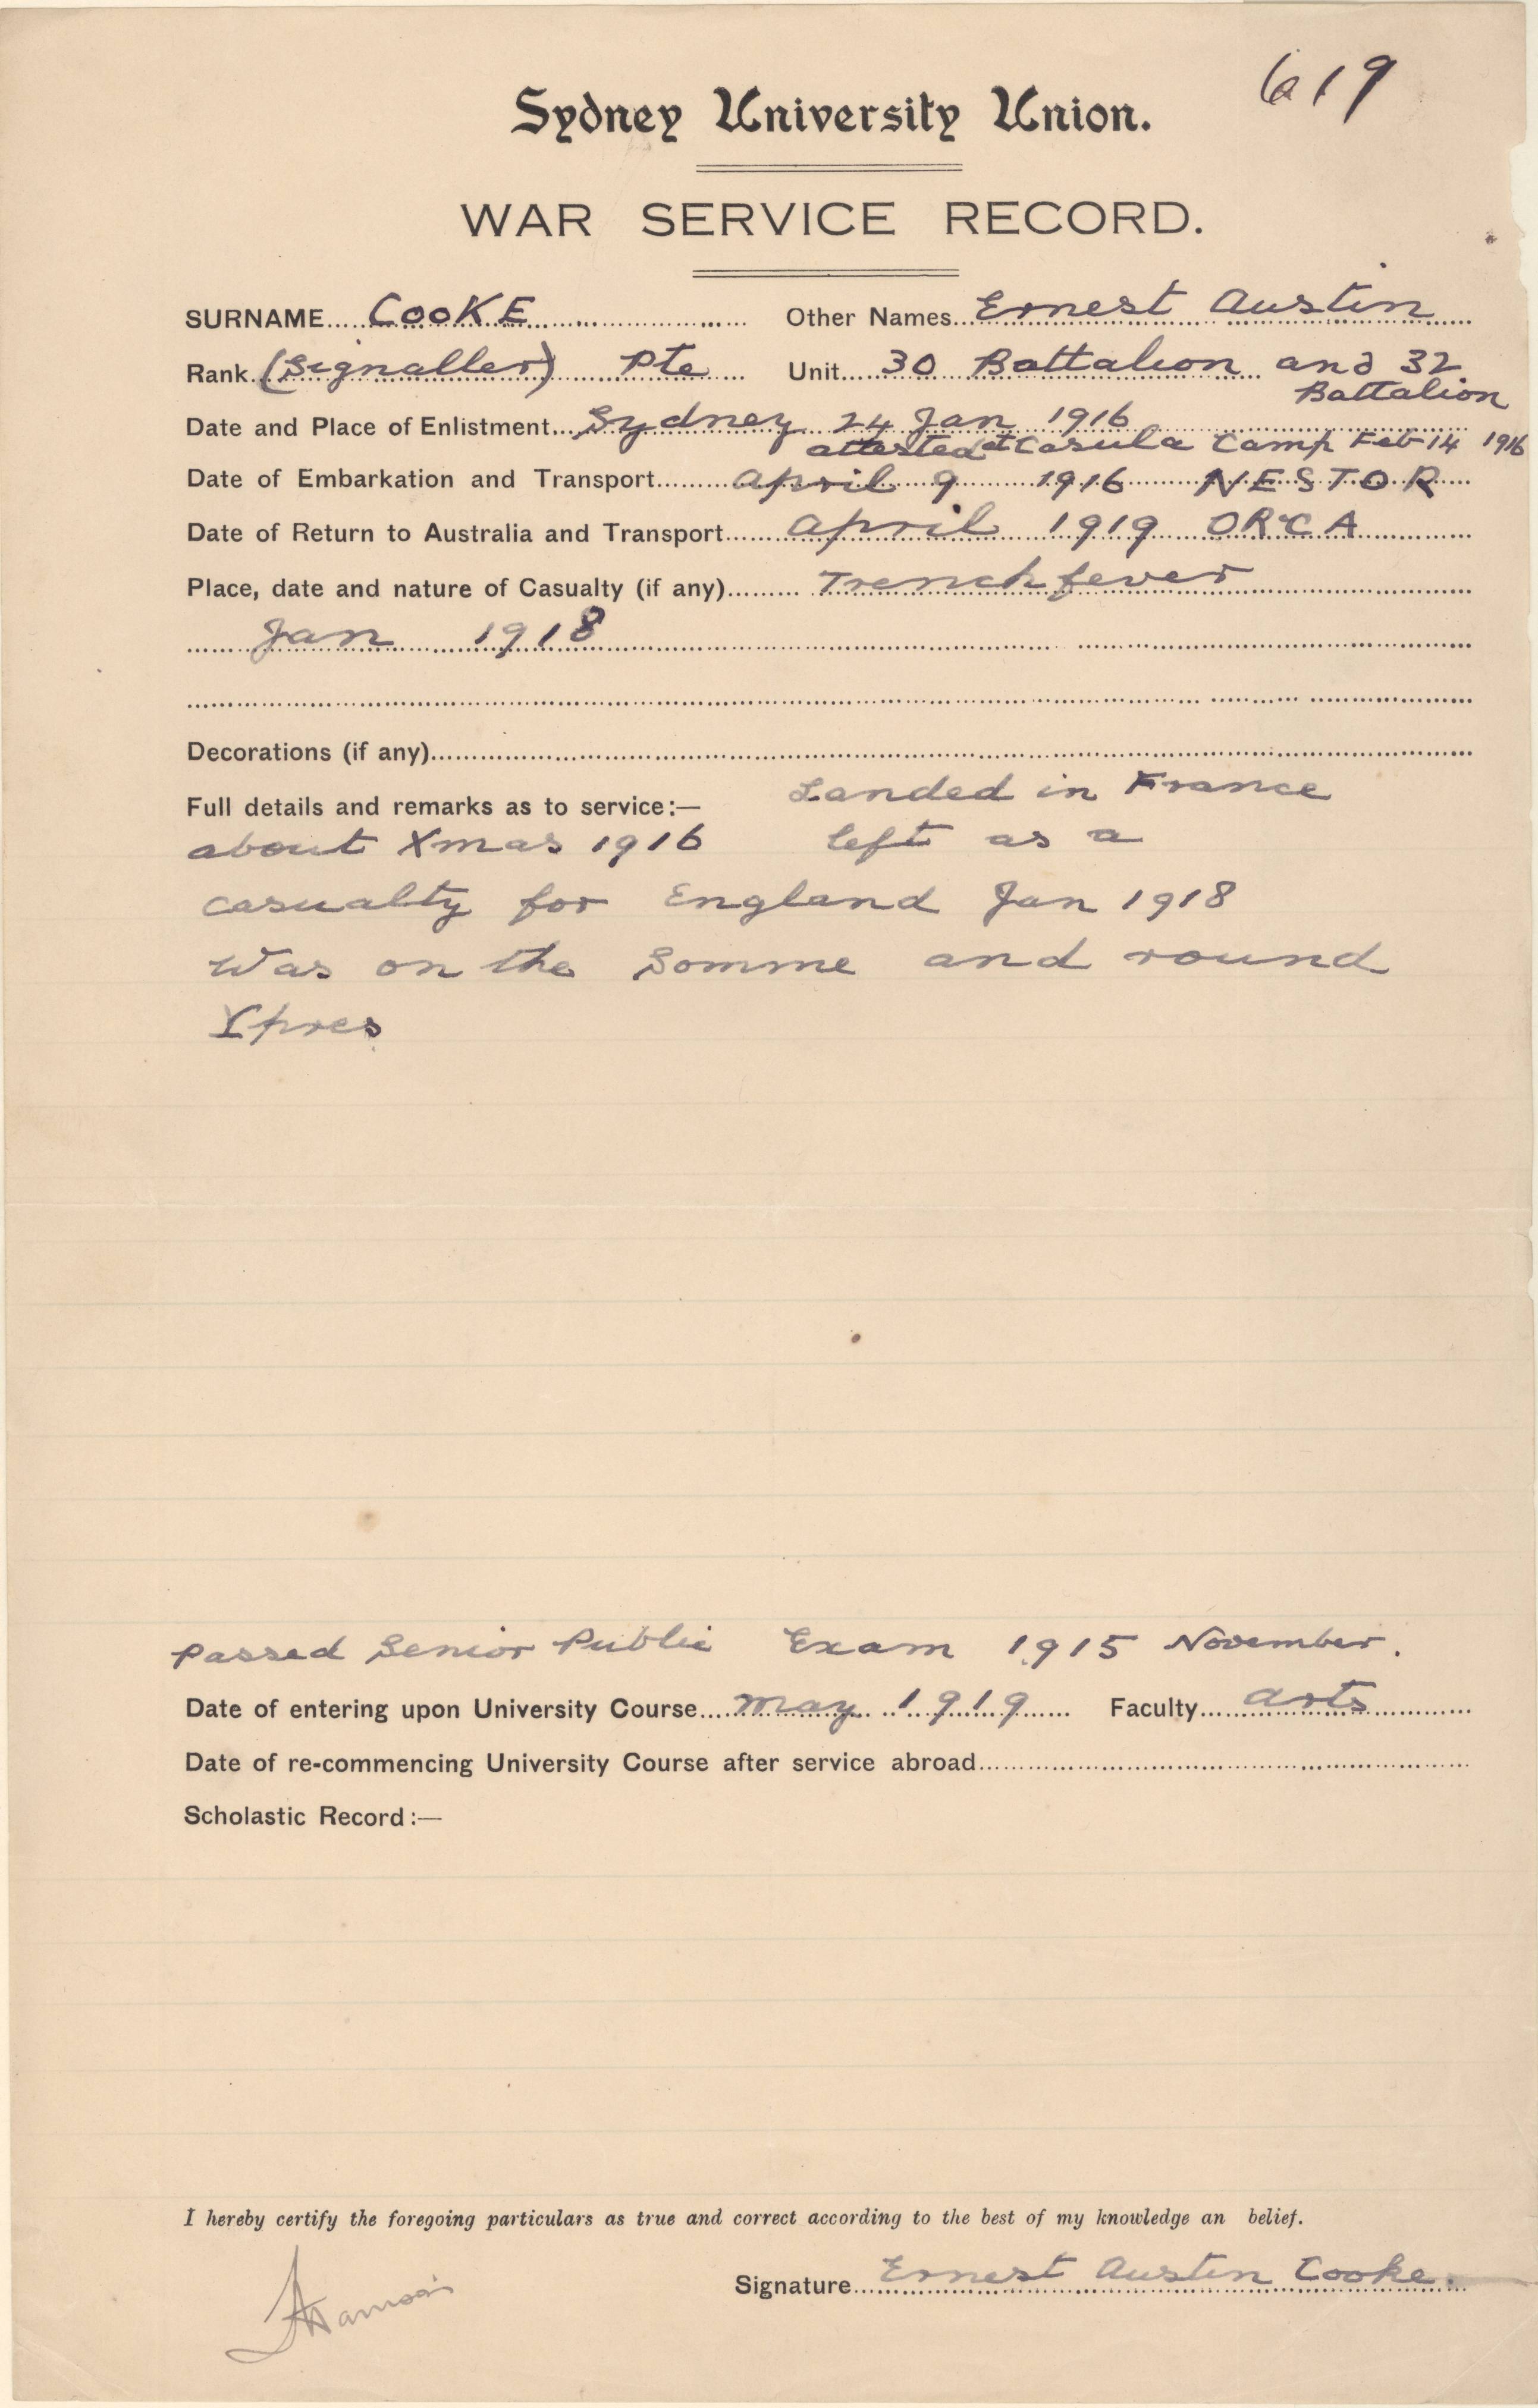 619
Sydney University Union.
WAR SERVICE RECORD.
SURNAME COOKE Other Names Ernest Austin
Rank (Signaller) Pte Unit 30 Battalion and 32
Battalion
Date and Place of Enlistment Sydney 24 Jan 1916
attested at Casula Camp Feb 14 1916
Date of Embarkation and Transport April 9 1916 NESTOR
Date of Return to Australia and Transport April 1919 ORCA
Place, date and nature of Casualty (if any) Trench fever
Jan 1918
Decorations (if any)
Full details and remarks as to service:— Landed in France
about Xmas 1916 left as a
casualty for England Jan 1918
Was on the Somme and round
Ypres
Passed Senior Public Exam 1915 November.
Date of entering upon University Course May 1919 Faculty Arts
Date of re-commencing University Course after service abroad
Scholastic Record:—
I hereby certify the foregoing particulars as true and correct according to the best of my knowledge an belief.
Signature Ernest Austin Cooke.